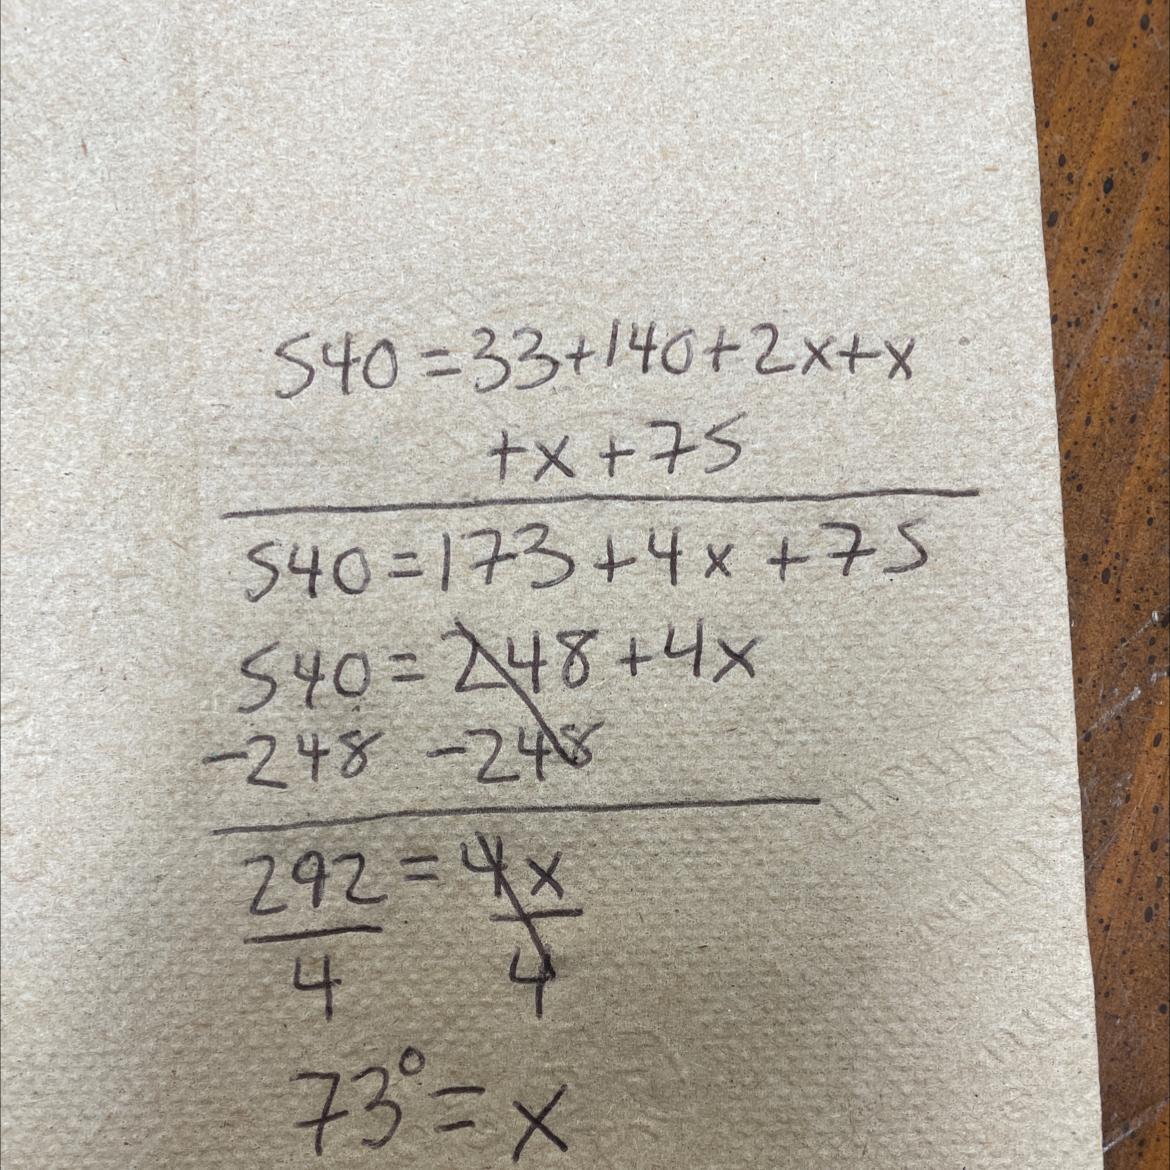 540 = 33+140+2x+x
+x+75
540 = 173+4x+75
540 = 248+4x
-248 -248
292 = 4x
4 4
73° = x